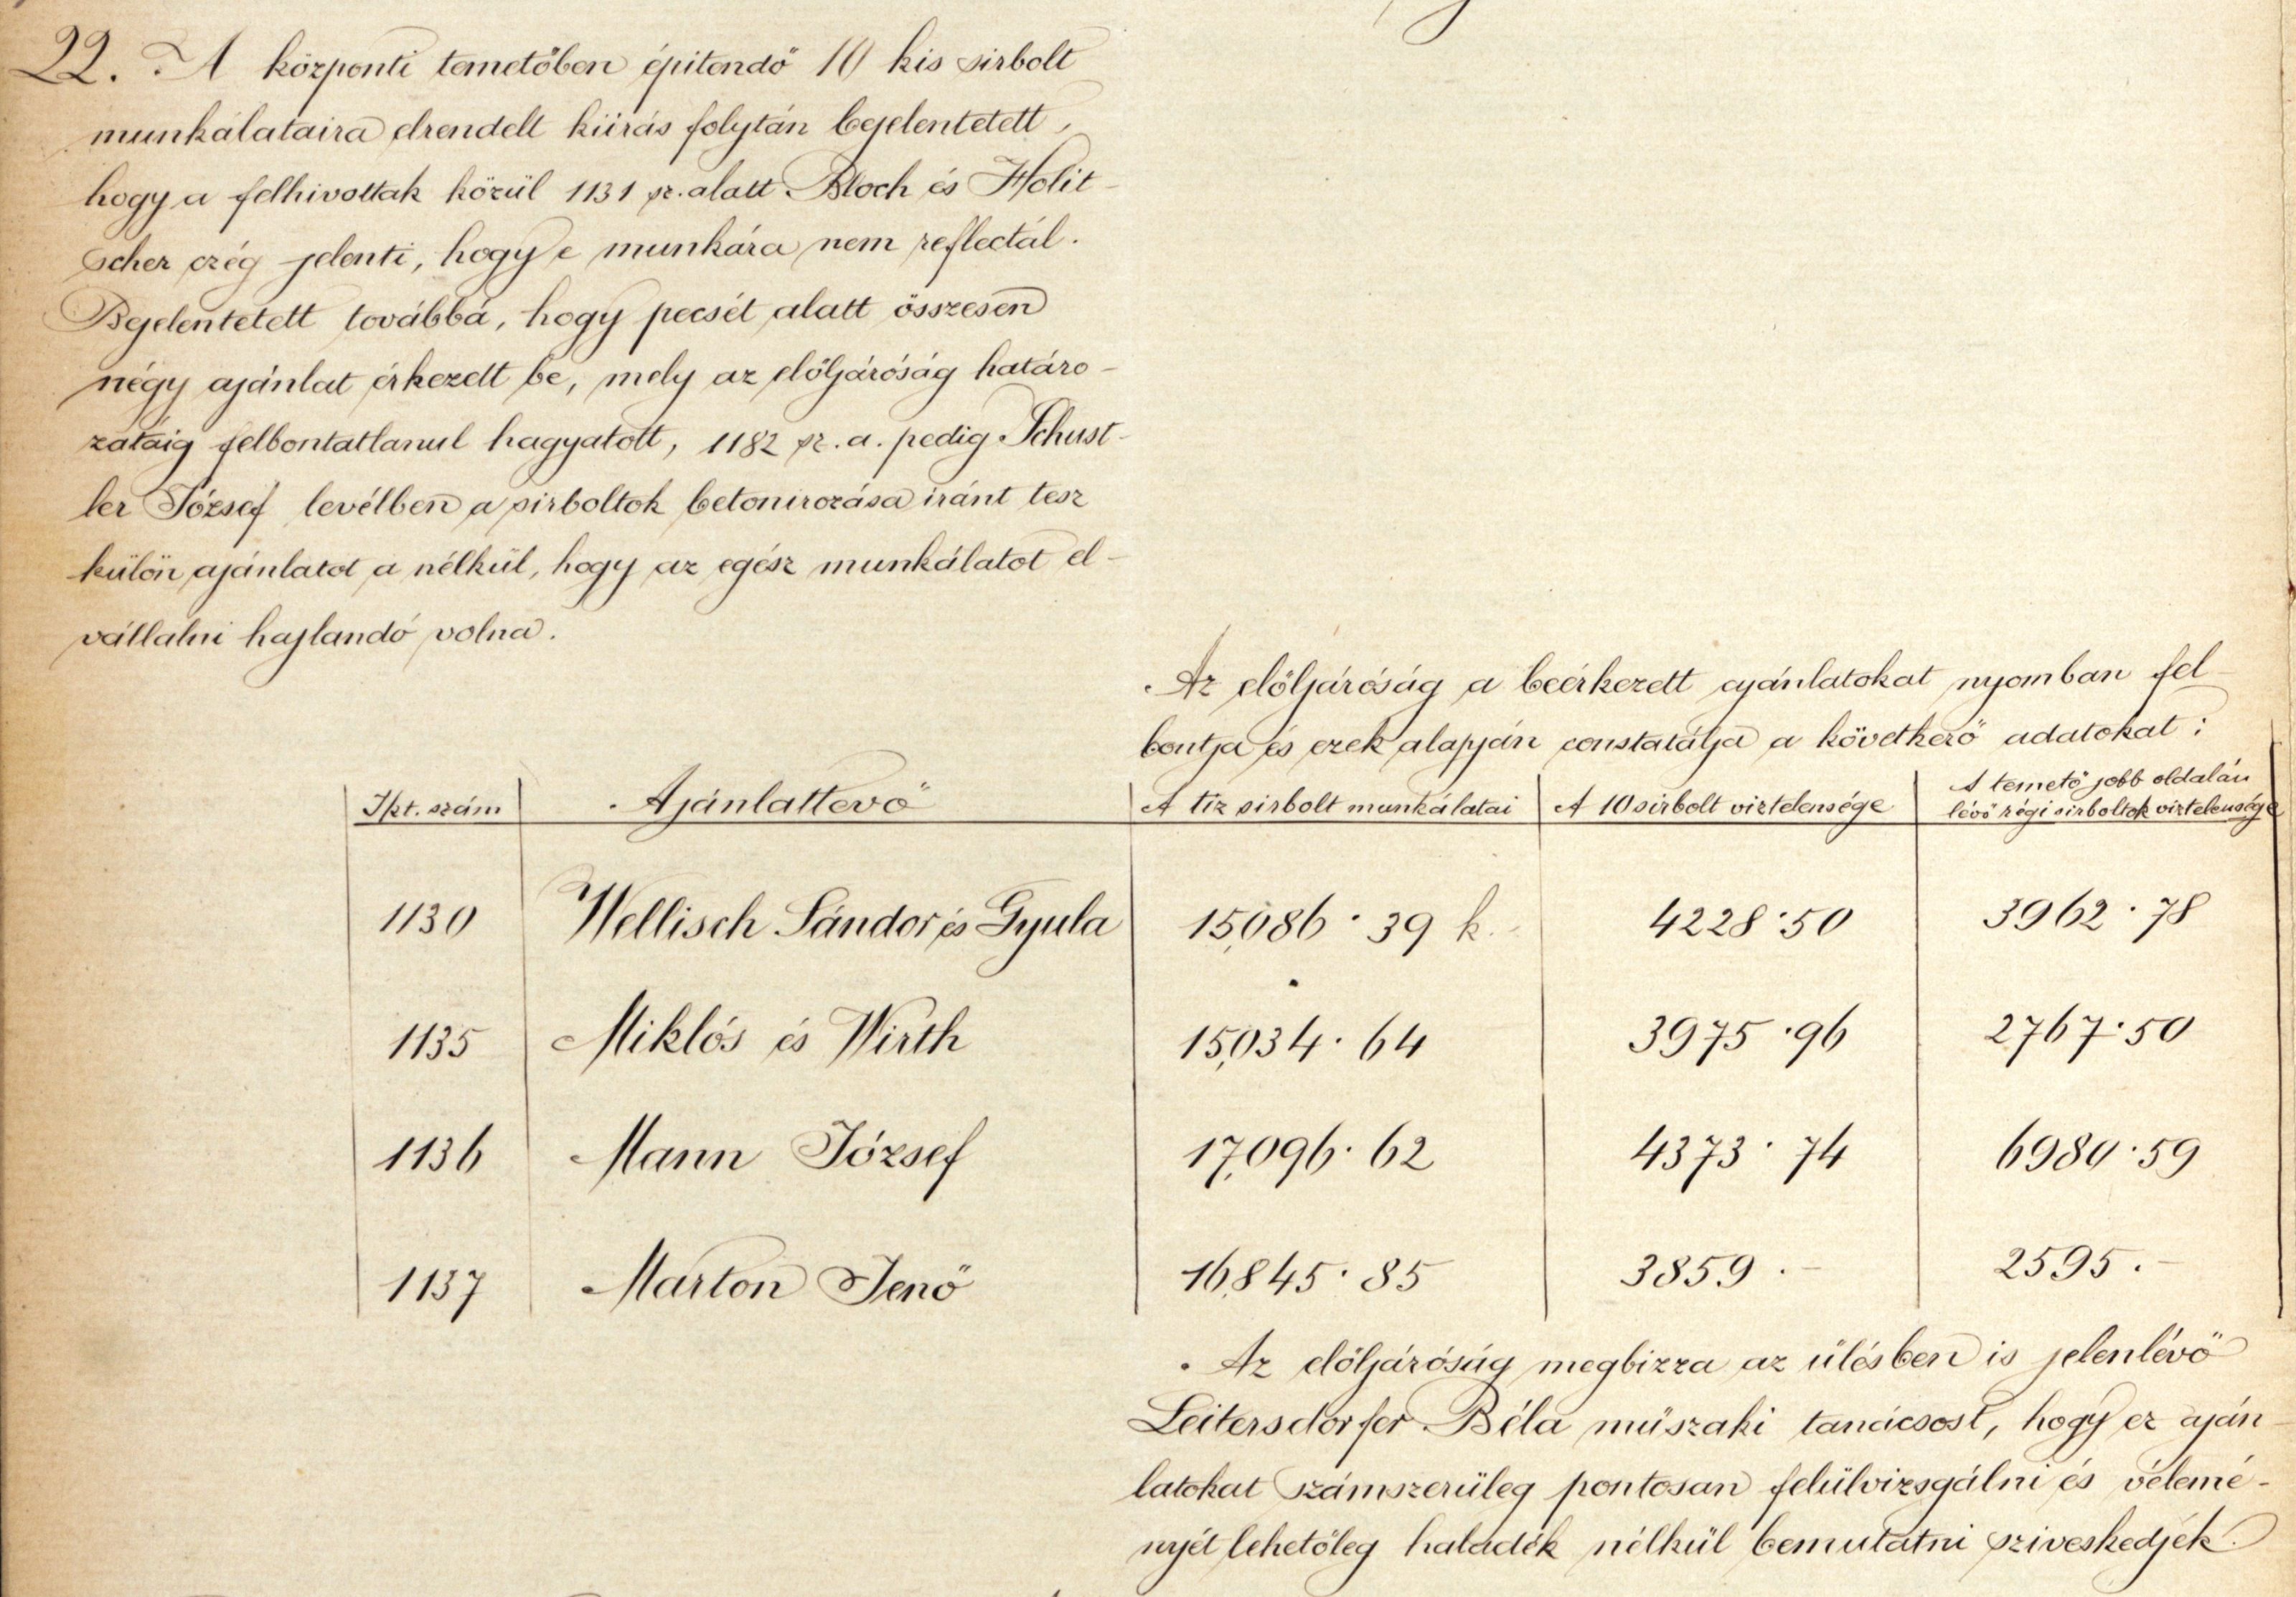 22. A központi temetőben épitendő 10 kis sirbolt
munkálataira elrendelt kiirás folytán bejelentetett,
hogy a felhivottak közül 1131 sz. alatt Bloch és Holit-
scher czég jelenti, hogy e munkára nem reflectál.
Bejelentetett továbbá, hogy pecsét alatt összesen
négy ajánlat érkezett be, mely az előljáróság határo-
zatáig felbontatlanul hagyatott, 1182 sz. a. pedig Schust-
ler József levélben a sirboltok betonirozása iránt tesz
külön ajánlatot a nélkül, hogy az egész munkálatot el-
vállalni hajlandó volna.
Az előljáróság a beérkezett ajánlatokat nyomban fel-
bontja és ezek alapján constatálja a következő adatokat:
Ikt. szám Ajánlattevő A tiz sirbolt munkálatai A 10 sirbolt viztelensége A temető jobb oldalán
lévő régi sirboltok viztelensége
1130 Wellisch Sándor és Gyula 15,086·39 k. 4228·50 3962·78
1135 Miklós és Wirth 15,034·64 3975·96 2767·50
1136 Mann József 17,096·62 4373·74 6980·59
1137 Marton Jenő 16,845·85 3859·- 2595.-
Az előljáróság megbizza az ülésben is jelenlévő
Leitersdorfer Béla müszaki tanácsost, hogy ez aján-
latokat számszerüleg pontosan felülvizsgálni és vélemé-
nyét lehetőleg haladék nélkül bemutatni sziveskedjék.